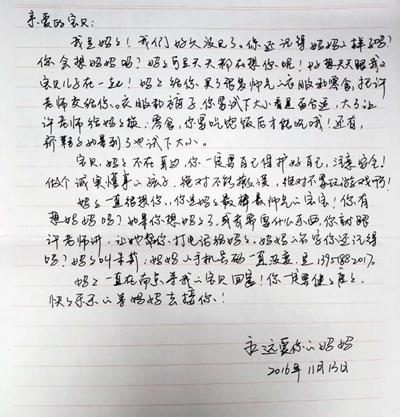 亲爱的宝贝:
我是妈妈!我们好久没见了。你还记得妈妈的样子吗?
你会想妈妈吗?妈妈可是天天都在想你呢!好想天天跟我的
宝贝儿子在一起!妈妈给你买了很多帅气的衣服和零食,托许
老师交给你。衣服和裤子你要试下大小看是否合适,大了让
许老师给妈妈换,零食,你要吃完饭后才能吃哦!还有,
新鞋子也要试下大小。
宝贝,妈妈不在身边,你一定要自己保护好自己,注意安全!
做个诚实懂事的孩子,绝对不能撒谎,绝对不要玩游戏啊!
妈妈一直很想你,你是妈妈最棒最帅气的宝宝!你有
想妈妈吗?如果你想妈妈了,或者需要什么东西,你就跟
许老师讲,让她帮你打电话给妈妈,妈妈的名字你还记得
吗?妈妈叫朱莉;妈妈的手机号码一直没变,是
妈妈一直在南京等我的宝贝回家!你一定要健健康康、
快快乐乐的等妈妈去接你!
永远爱你的妈妈
2016年11月13日